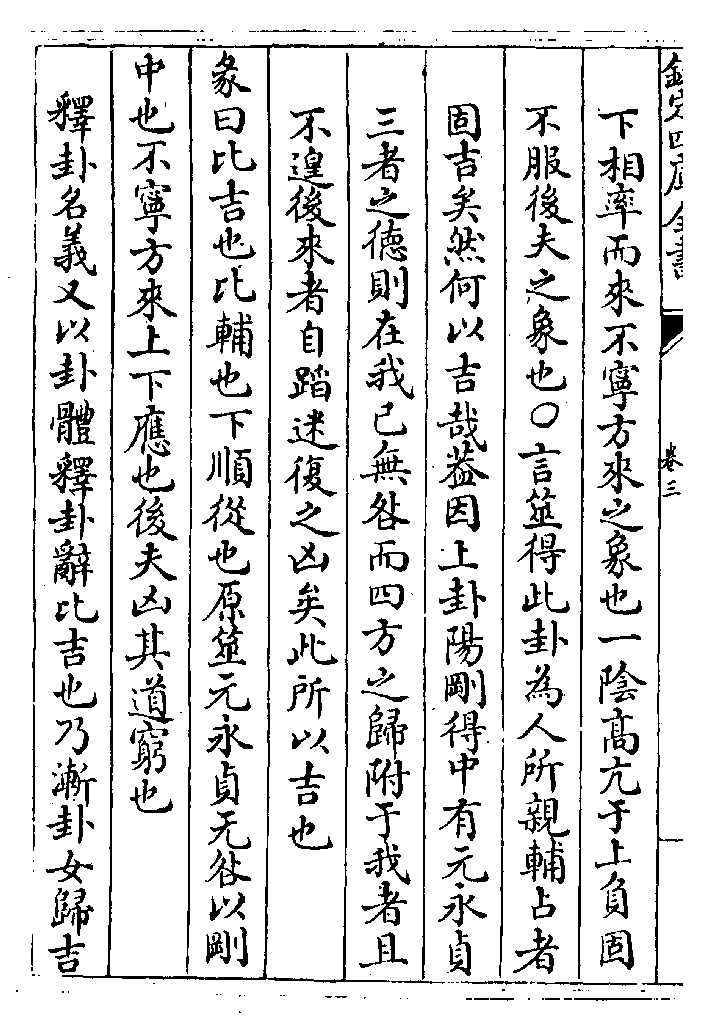 欽定四庫全書
卷三
下相率而來不寧方來之象也一陰髙亢于上負固
不服後夫之象也〇言筮得此卦為人所親輔占者
固吉矣然何以吉哉葢因上卦陽剛得中有元永貞
三者之徳則在我已無咎而四方之歸附于我者且
不遑後來者自蹈迷復之凶矣此所以吉也
彖曰比吉也比輔也下順從也原筮元永貞无咎以剛
中也不寧方來上下應也後夫凶其道窮也
釋卦名義又以卦體釋卦辭比吉也乃漸卦女歸吉